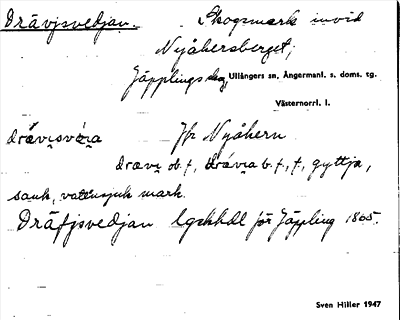 Drävjsvedjan. Skogsmark invid
Nyåkersberget;
Jäpplings skog, Ullångers sn, Ångermanl. s. doms. tg.
Västernorrl. l.
Jfr Nyåkern
drævi ob. f., b. f., f., gyttja,
sank, vattensjuk mark.
Dräfjsvedjan lgskhdl för Jäppling 1865.
Sven Hiller 1947